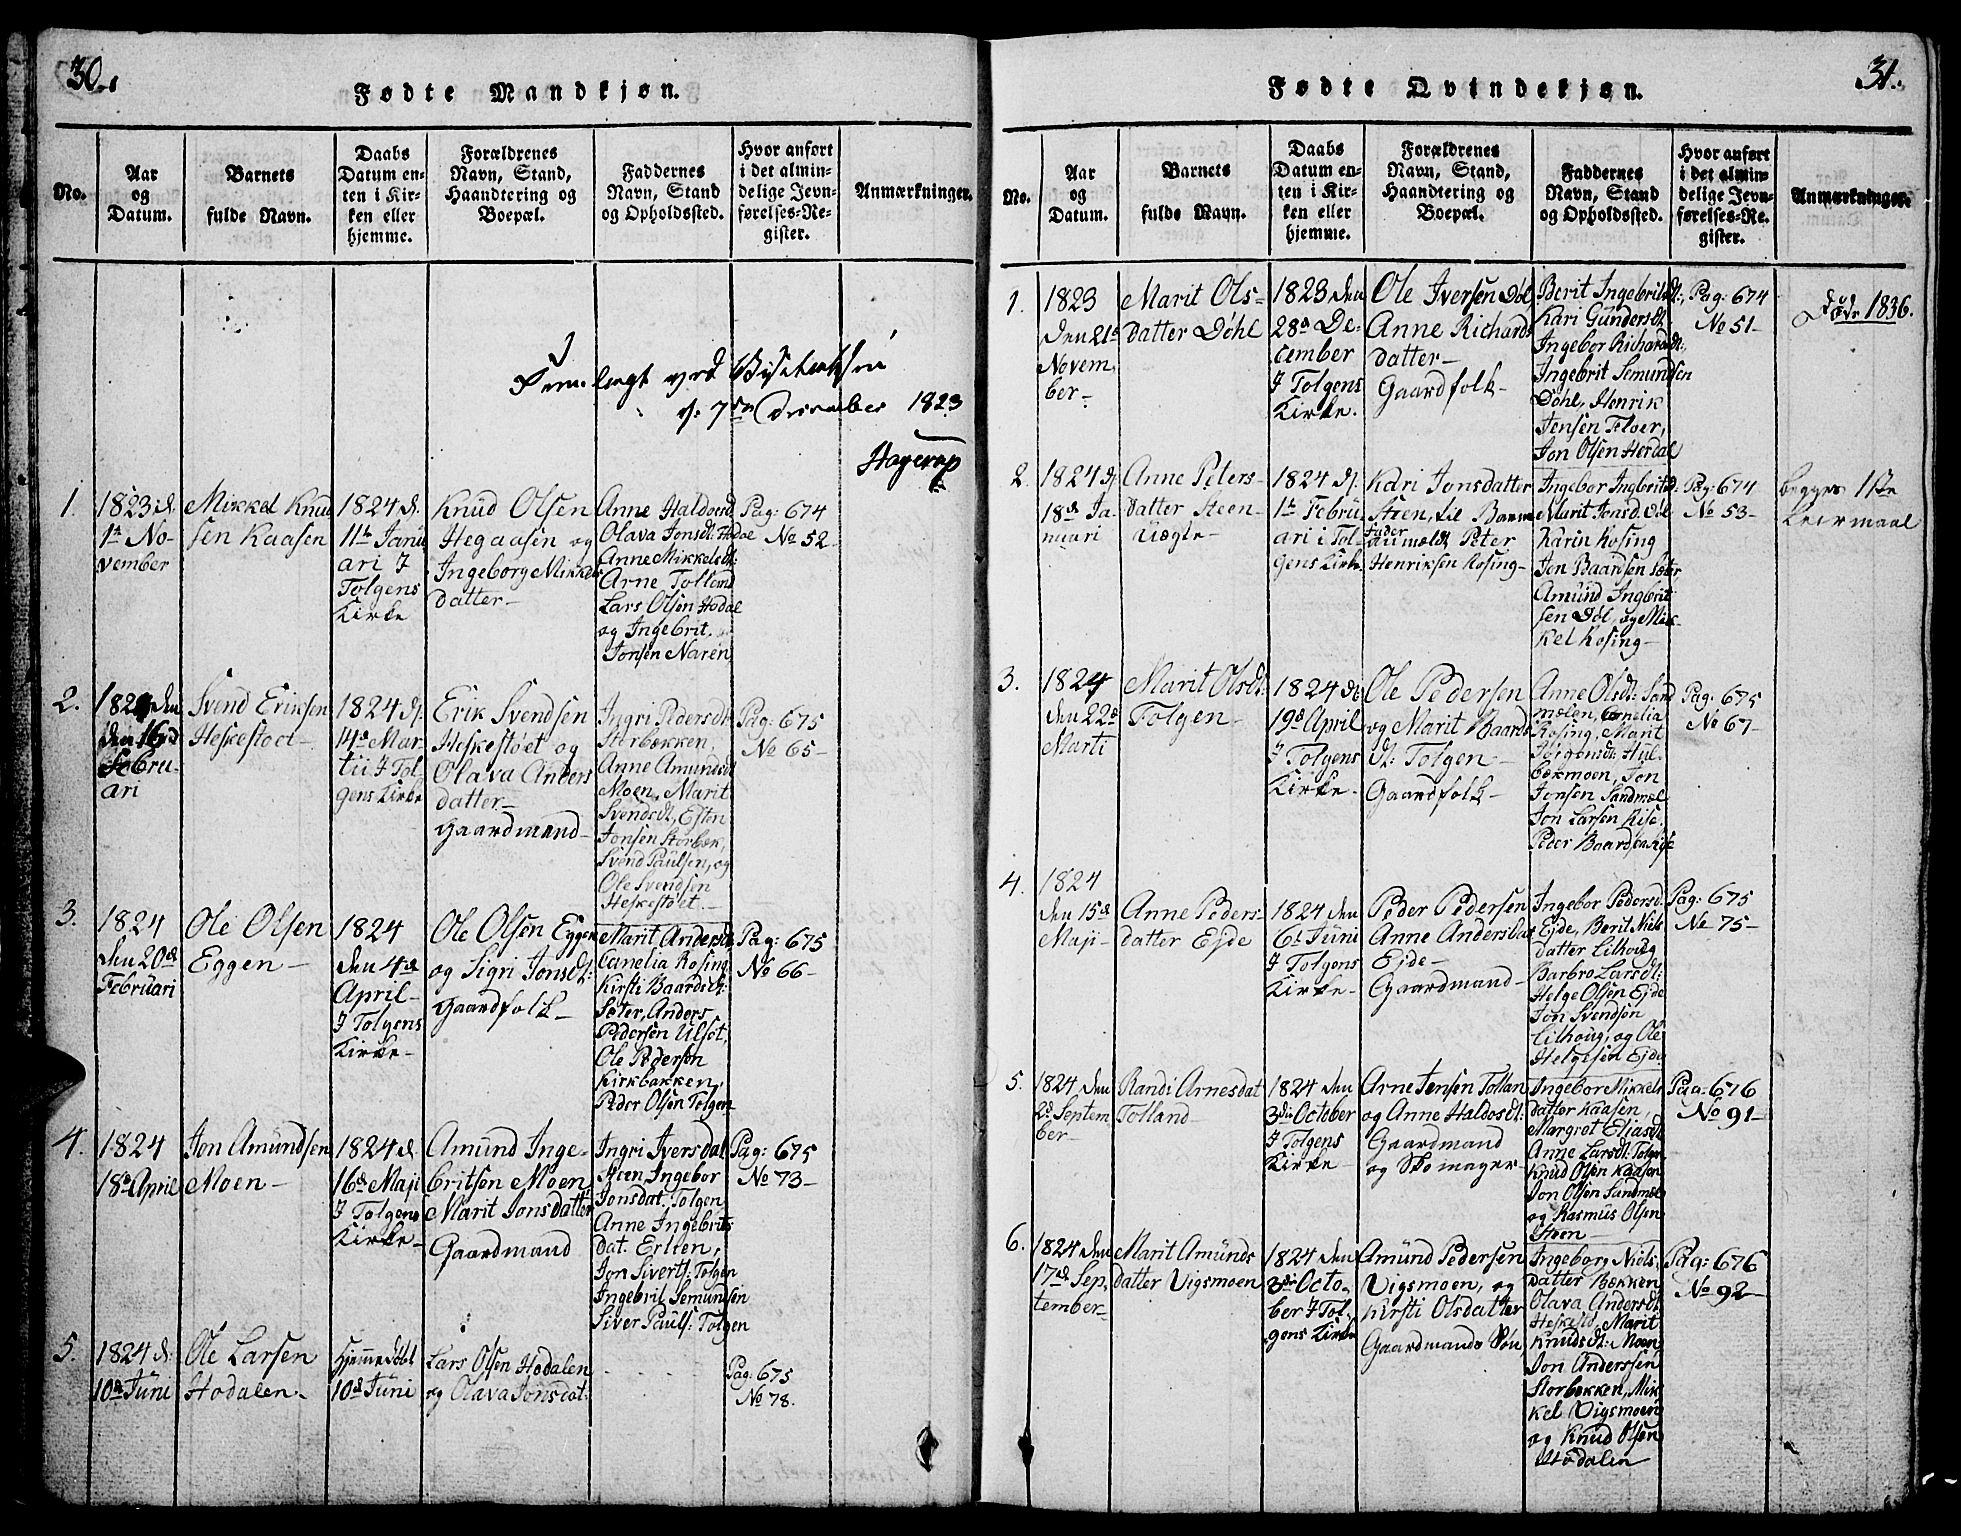 30.
Fødte Mandkjøn.
No.
Aar
og
Datum.
Barnets
fulde Navn.
Daabs
Datum en-
ten i Kir-
ken eller
hjemme.
Forældrenes
Navn, Stand,
Haandtering og
Boepæl.
Faddernes
Navn, Stand
og Opholdssted.
Hvor anført
i det almin-
delige Jevn-
førelses-Re-
gister.
Anmærkninger.
Fremlagt ved Visitatsen
d. 7de December 1823
Hagerup
1.
1823 d.
1te No-
vember
Mikkel Knud
sen Kaasen
1824 d.
11te Janu
ari J
Tolgens
Kirke
Knud Olsen
Hegaasen og
Ingeborg Mikkels
datter-
Anne Haldosd
Olava Jonsdt: Hodal
Anne Mikkelsdt:
Arne Tolland
Lars Olsen Hodal
og Ingebrit.
Jonsen Naren
Pag: 674
No 52-
2.
1824 den
den 16de
Febru-
ari
Svend Eriksen
Heskestoet-
1824 d.
14de Mar-
tii J Tol-
gens Kirke
Erik Svendsen
Heskestøet og
Olava Anders
datter-
Gaardmand-
Ingri Pedersdt:
Storbækken,
Anne Amundsdt
Moen, Marit
Svendsdt, Esten
Jonsen Storbæk,
Svend Paulsen, og
Ole Svendsen
Heskestøet.-
Pag: 675
No 65-
3.
1824
den 20de
Februari
Ole Olsen
Eggen-
1824
den 4de
April-
J Tolgens
Kirke-
Ole Olsen Eggen
og Sigri Jonsdt:
Gaardfolk-
Marit Andersdt
Canelia Rosing
Kirsti Baardsdt:
Sæter, Anders
Pedersen Ulsøt,
Ole Pedersen
Kirkbakken,
Peder Olsen Tolgen
Pag: 675
No 66-
4.
1824
18de April
Jon Amundsen
Moen-
1824 d.
16de Maji
J Tolgens
Kirke-
Amund Inge-
britsen Moen
Marit Jonsdatter
Gaardmand
Ingri Iversdat
Steen, Ingebor
Jonsdat, Tolgen
Anne Ingebrits
dat. Erlien,
Jon Siverts: Tolgen
Ingebril Semundsen
Siver Pauls: Tolgen
Pag: 675
No 73-
5.
1824 d:
10de Juni
Ole Larsen
Hodalen-
Hjemmedøbt
10de Juni
Lars Olsen Hodalen
og Olava Jonsdat:
Pag: 675
No 78.
31.
Fødte Qvindekjøn.
No.
Aar
og
Datum.
Barnets
fulde Navn.
Daabs
Datum en-
ten i Kir-
ken eller
hjemme.
Forældrenes
Navn, Stand,
Haandtering og
Boepæl.
Faddernes
Navn, Stand
og Opholdssted.
Hvor anført
i det almin-
delige Jevn-
førelses-Re-
gister.
Anmærkninger.
1.
1823
den 21de
Novem
ber-
Marit Ols-
datter Döhl
1823 den
28de De-
cember
J Tolgens
Kirke.
Ole Iversen Döl
Anne Richards
datter-
Gaardfolk-
Berit Ingebritsdt:,
Kari Gundersdt
Ingebor Richardsdt:,
Ingebrit Semundsen
Döhl, Henrik
Jensen Floer,
Jon Olsen Hordal
Pag: 674
No 51-
Døde 1836.
2.
1824 d.
18de Ja-
nuari
Anne Peters-
datter Steen-
Uægte-
1824 d.
1te Febru-
ari i Tol-
gens Kirke
Kari Jonsdatter
Steen, til Barne
Fader
anmeldt Peter
Henriksen Rosing-
Ingebor Ingbritsdt:
Marit Jonsd. Döl
Karin Rosing
Jon Baardsen Sæter
Amund Ingbrit
sen Döl, og Mik-
kel Rosing-
Pag: 674
No 53-
begges 1ste
Leiermaal
3.
1824
den 22de
Marti
Marit Olsdt:
Tolgen-
1824 d.
19de April
J Tolgens
Kirke-
Ole Pedersen
og Marit Baards
dt: Tolgen-
Gaardfolk-
Anne Olsdt: Sand
mælen, Cornelia
Rosing, Marit
Jörgensdt: Hul-
bækmoen, Jon
Jonsen Sandmæl
Jon Larsen Kise
Peder Baardsen Kise
Pag: 675
No 67-
4.
1824
den 15de
Maji-
Anne Peders-
datter Ejde
1824 den
6te Juni
J Tolgens
Kirke-
Peder Pedersen
Anne Andersdat
Ejde-
Gaardmand-
Ingebor Pedersd.
Ejde, Berit Niels
datter Lilhoug
Barbro Larsdt:
Helge Olsen Ejde
Jon Svendsen
Lilhoug, og Ole
Helgesen Ejde
Pag: 675
No 75-
5.
1824 den
2de Septem
ber-
Randi Arnesdat
Tolland-
1824 den
3die October
J Tolgens
Kirke-
Arne Jensen Tollan
og Anne Haldosdt:
Gaardmand
og Skomager-
Ingebor Mikkels
datter Kaasen,
Margret Eliasdt
Anne Larsdt: Tolgen
Knud Olsen Kaasen
Jon Olsen Sandmæl
og Rasmus Olsen
Steen-
Pag: 676
No 91-
6.
1824 den
17de Sep-
tember-
Marit Amunds
datter Vigsmoen
1824 den
3die Octo-
ber J Tol-
gens Kirke
Amund Pedersen
Vigsmoen, og
Kirsti Olsdatter
Gaardmands Søn
Ingeborg Niels
datter Bækken
Olava Andersdt
Heskestö, Marit
Knudsdt: Moen
Jon Andersen
Storbækken, Mik
kel Vigsmoen
og Knud Olsen
Hodalen
Pag: 676
No 92-